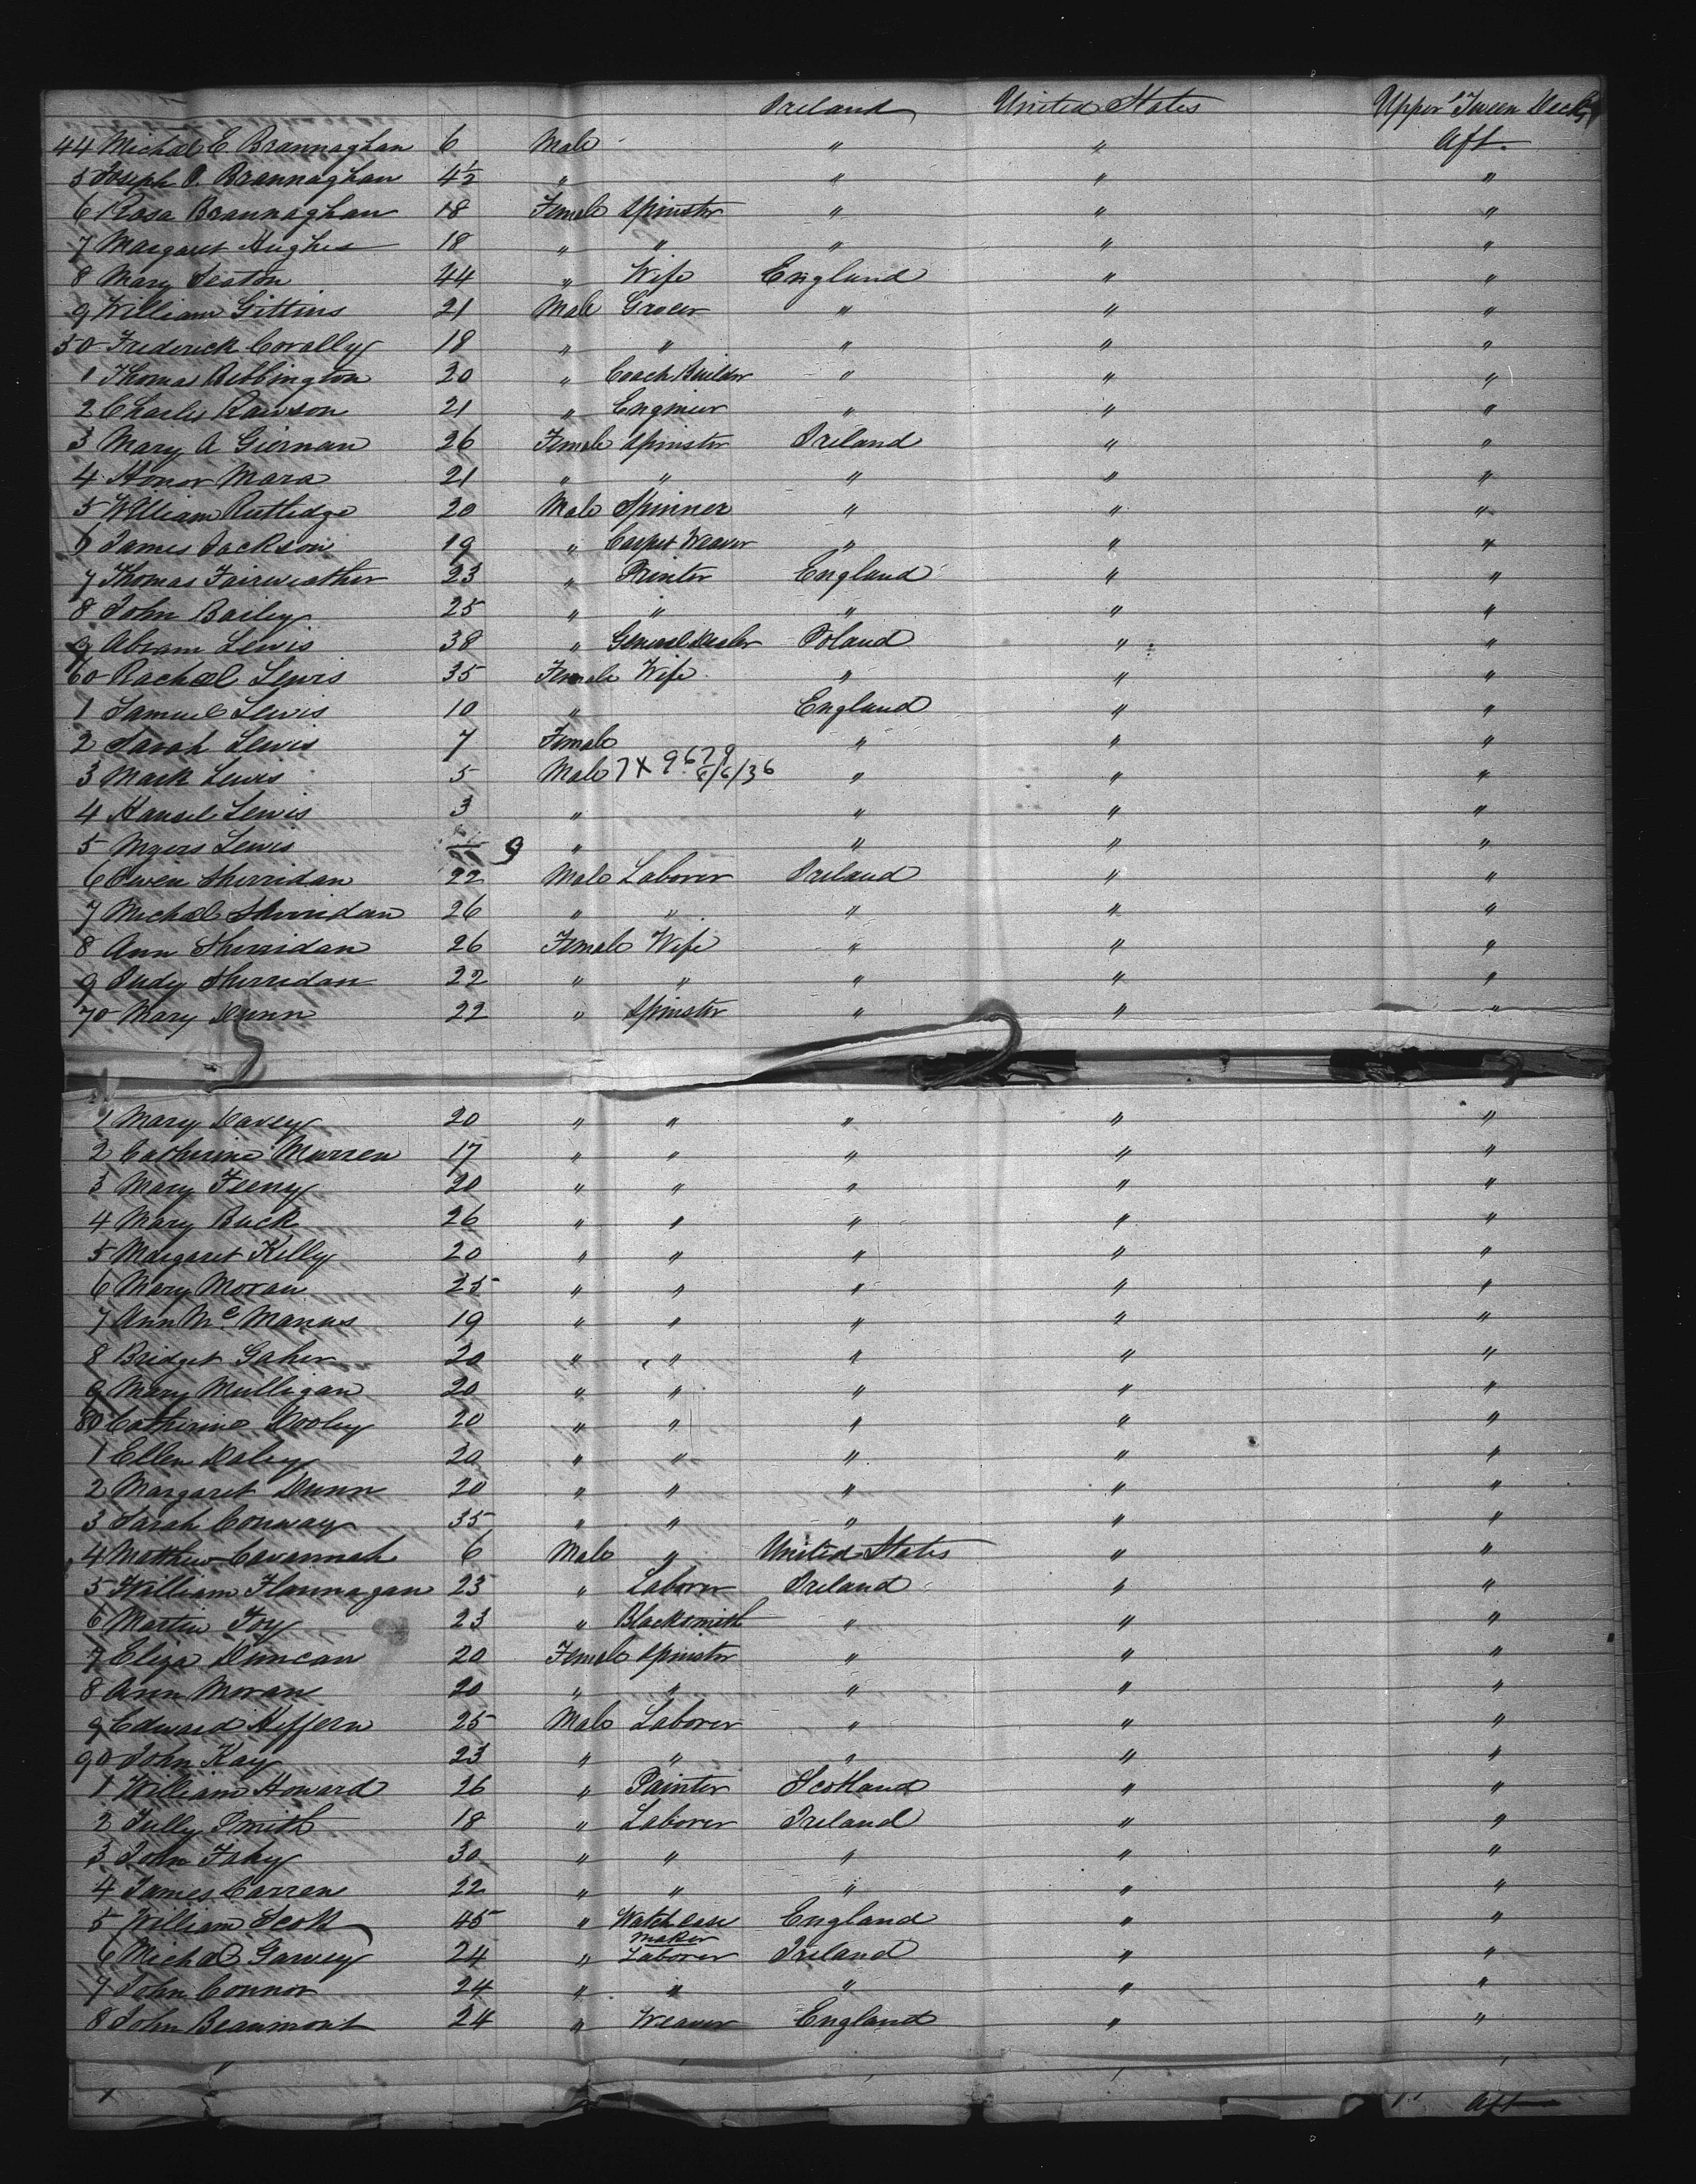 Ireland United States Upper 'Tween Decks
44 Michael E. Brannaghan 6 Male " " Aft.
5 Joseph P. Brannaghan 4½ " " " "
6 Rosa Brannaghan 18 Female Spinster " " "
7 Margaret Hughes 18 " " " " "
8 Mary Seaton 44 " Wife England " "
9 William Gittins 21 Male Grocer " " "
50 Frederick Corally 18 " " " " "
1 Thomas Bebbington 20 " Coach Builder " " "
2 Charles Rawson 21 " Engineer " " "
3 Mary A Giernan 26 Female Spinster Ireland " "
4 Honor Mara 21 " " " " "
5 William Rutledge 20 Male Spinner " " "
6 James Jackson 19 " Carpet Weaver " " "
7 Thomas Fairweather 23 " Printer England " "
8 John Bailey 25 " " " " "
9 Abram Lewis 38 " General Dealer Poland " "
60 Rachael Lewis 35 Female Wife " " "
1 Samuel Lewis 10 " England " "
2 Sarah Lewis 7 Female " " "
3 Mark Lewis 5 Male 7X 9679 6/6/36 " " "
4 Lewis 3 " " " "
5 Myers Lewis 9 " " " "
6 Owen Sherridan 22 Male Laborer Ireland " "
7 Michael Sherridan 26 " " " " "
8 Ann Sherridan 26 Female Wife " " "
9 Judy Sherridan 22 " " " " "
70 Mary Dunn 22 " Spinster " " "
1 Mary Davey 20 " " " " "
2 Catherine Murren 17 " " " " "
3 Mary Feeny 20 " " " " "
4 Mary Buck 26 " " " " "
5 Margaret Kelly 20 " " " " "
6 Mary Moran 25 " " " " "
7 Ann McManus 19 " " " " "
8 Bridget Gaher 20 " " " " "
9 Mary Mulligan 20 " " " " "
80 Catherine Dooley 20 " " " " "
1 Ellen Daley 20 " " " " "
2 Margaret Dunn 20 " " " " "
3 Sarah Conway 35 " " " " "
4 Matthew Cavannah 6 Male " United States " "
5 William Flannagan 23 " Laborer Ireland " "
6 Martin Foy 23 " Blacksmith " " "
7 Eliza Duncan 20 Female Spinster " " "
8 Ann Moran 20 " " " " "
9 Edward Heffern 25 Male Laborer " " "
90 John Kay 23 " " " " "
1 William Howard 26 " Painter Scotland " "
2 Tully Smith 18 " Laborer Ireland " "
3 John Fahy 30 " " " " "
4 James Carren 22 " " " " "
5 William Scott 45 " Watch case maker England " "
6 Michael Garvey 24 " Laborer Ireland " "
7 John Connor 24 " " " " "
8 John Beaumont 24 " Weaver England " "
Aft